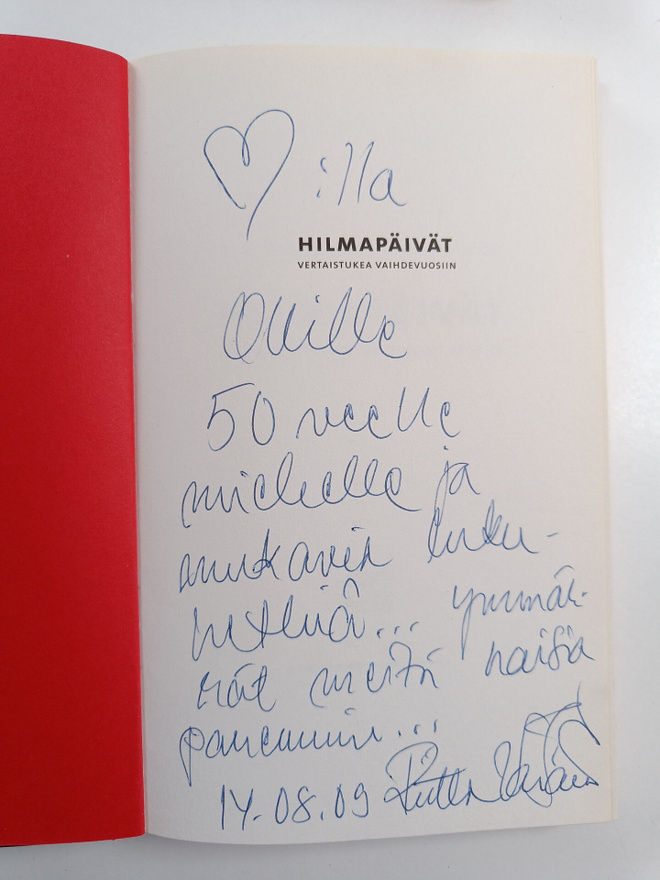 :lla
HILMAPÄIVÄT
VERTAISTUKEA VAIHDEVUOSIIN
Ollille
50 veelle
miehelle ja
mukavia luku-
hetkiä... ymmär-
rät meitä naisia
paremmin...
14.08.09 Riitta